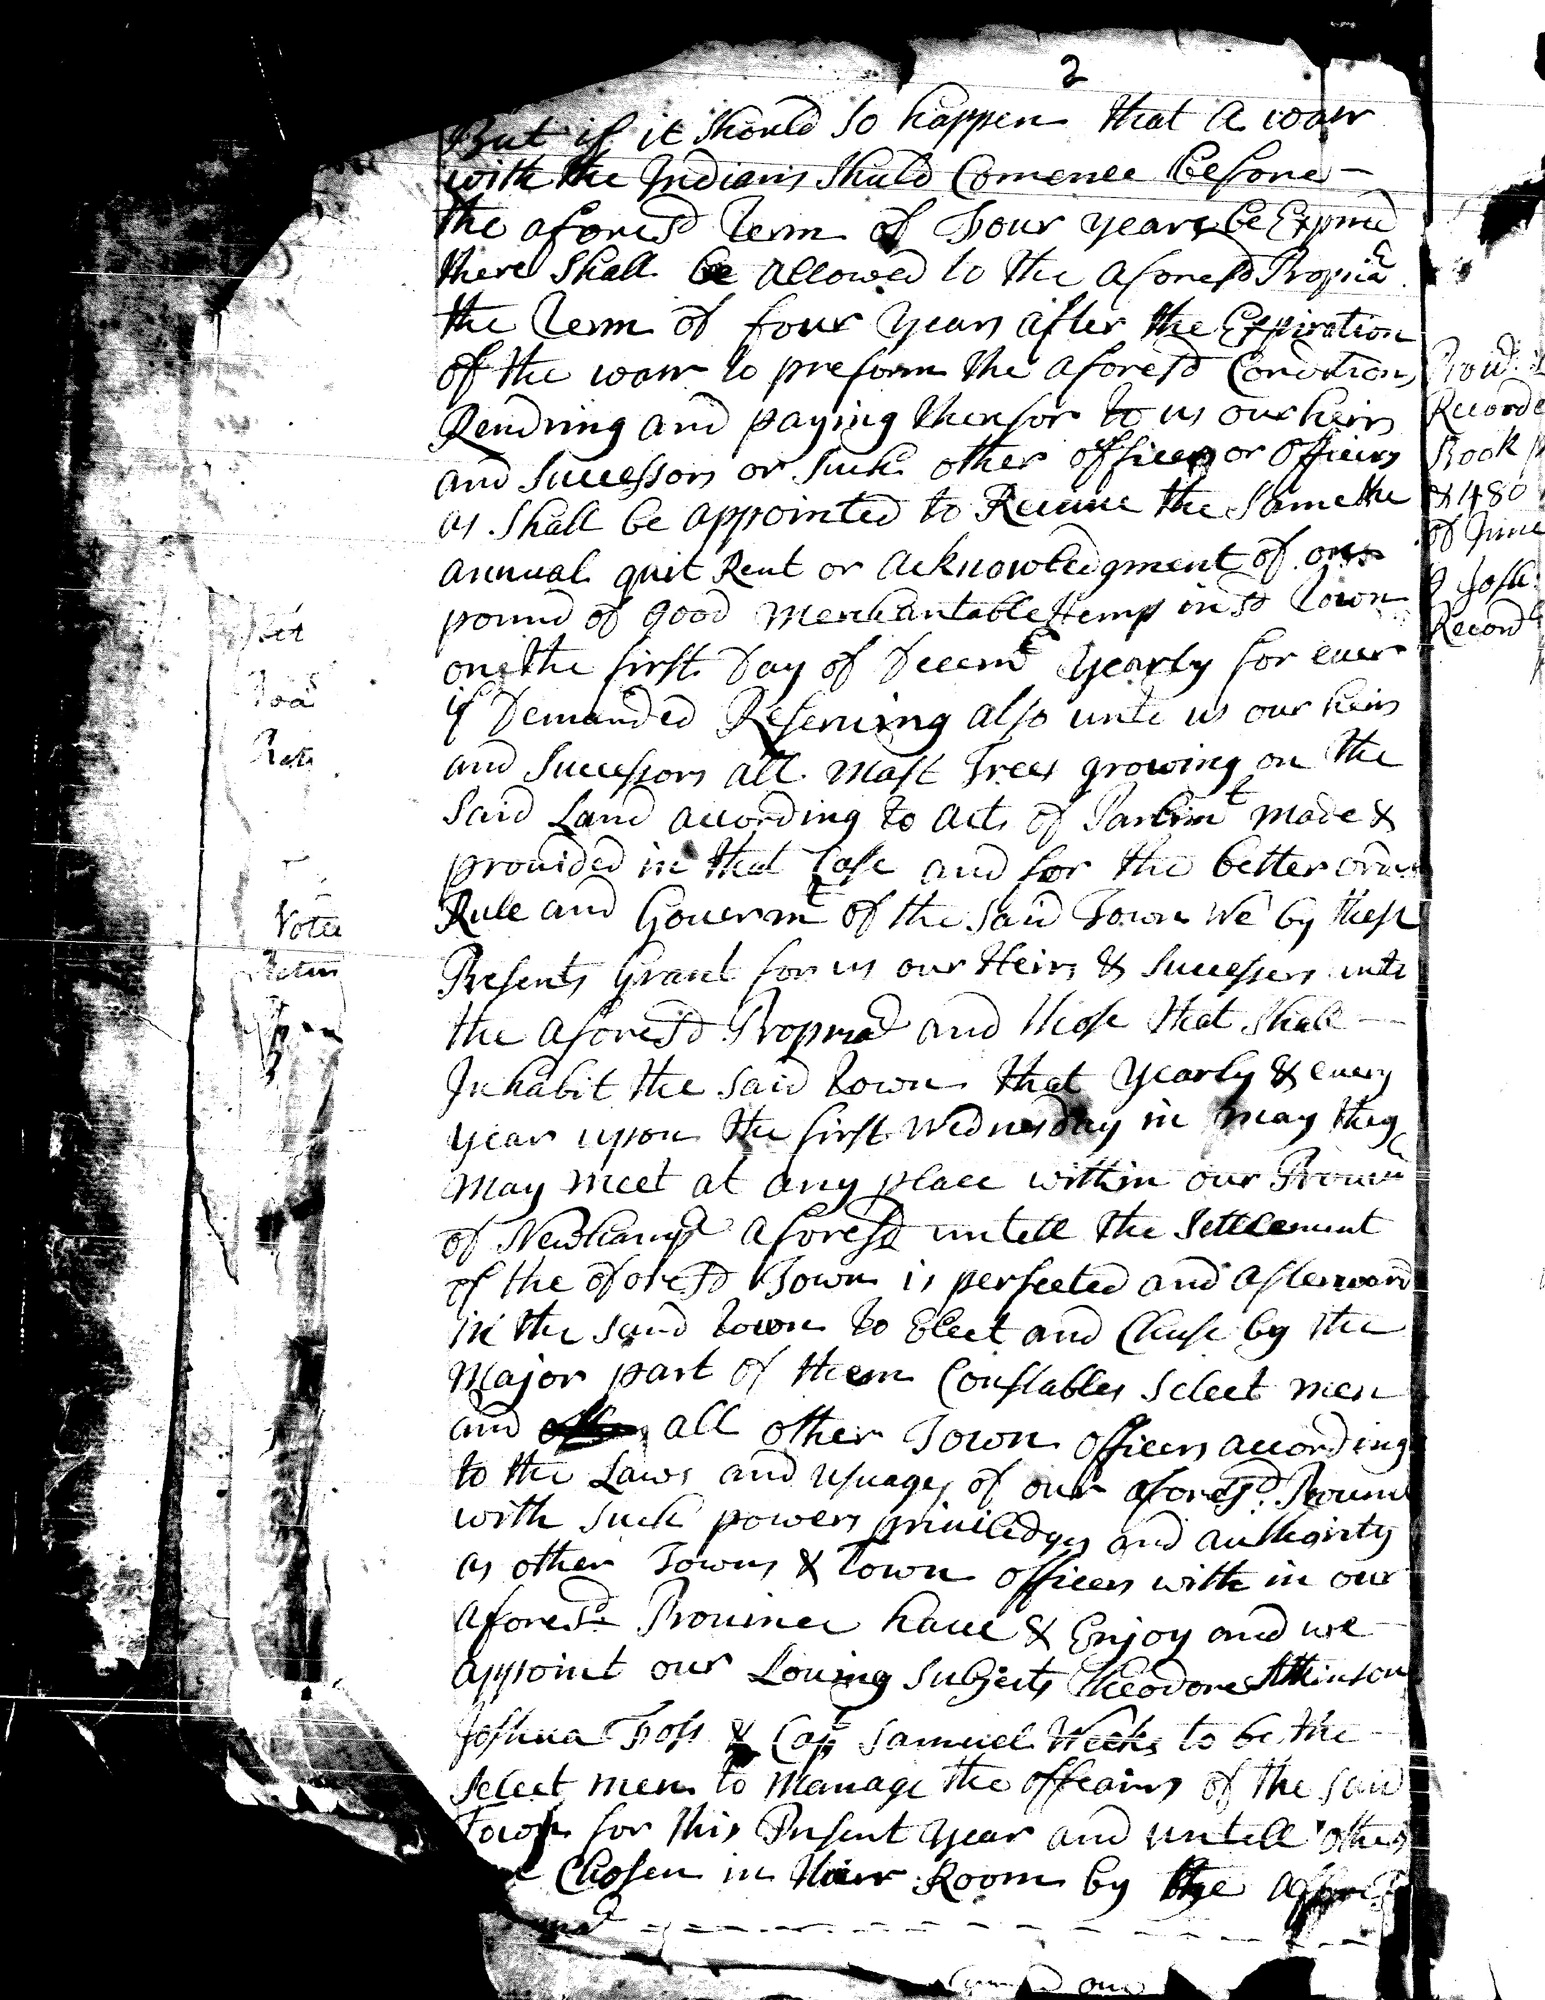 2
But if it Should So happen that a warr
with the Indians Shuld Comence before
the aforesd Term of Four years be Expired
there Shall be allowed to the aforesd Proprs
the Term of four Years after the Expiration
of the warr to preform the aforesd Condition
Rendring and paying therefor to us our heirs
and Successors or Such other officer or officers
as Shall be appointed to Receive the Same the
annual quit Rent or acknowledgment of one
pound of good merchantable Hemp in sd Town
on the first Day of Decemr yearly for ever
if Demanded Reserving also unto us our heirs
and Successors all mast Trees growing on the
Said Land according to acts of Parlimt made &
provided in that Case and for the better order
Rule and Governmt of the Said Town We by these
Presents Grant for us our Heirs & Successors unto
the aforesd Proprs and those that Shall
Inhabit the Said Town that yearly & every
year upon the first Wednesday in may they
may meet at any place within our Provin
of Newhampr aforesd untill the Settlement
of the aforesd Town is perfected and afterward
in the said Town to Elect and Chuse by the
Major part of them Constables Select men
and all other Town officers according
to the Laws and usuages of our aforesd Province
with Such powers priviledges and authority
as other Towns & Town officers with in our
aforesd Province have & Enjoy and we
appoint our Loving Subjects Theodore Atkinson
Joshua Foss & Capt Samuel Weeks to be the
Select men to manage the affeairs of the said
Town for this Present year and untill others
Chosen in their Room by the aforesd
Provd
Recorde
Book p
& 480
of June
Josh:
Record
Votee
Return